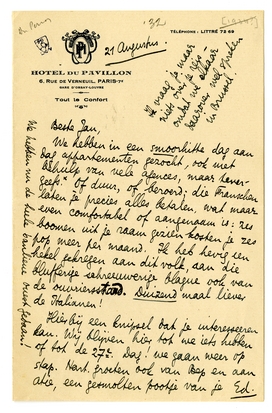 '32
HOTEL DU PAVILLON
6, RUE DE VERNEUIL, PARIS-7e
GARE D'ORSAY-LOUVRE
Tout le Confort
TÉLÉPHONE : LITTRÉ 72 69
21 Augustus
Beste Jan,
We hebben in een smoorhitte dag aan
dag appartementen gezocht, ook met
behulp van vele agences, maar never-
geefs. Of duur, of beroerd; die Franschen
laten je precies alles betalen, wat maar
even comfortabel of aangenaam is: zes
boomen uit je raam gezien kosten je zes
pop meer per maand. Ik heb hevig een
hekel gekregen aan dit volk, aan die
blufferige schreeuwerige blague ook van
de ouvriersstand. Duizend maal liever
de Italianen!
Hierbij een knipsel dat je interesseeren
kan. Wij blijven hier tot we iets hebben
of tot de 27e. Dag! we gaan weer op
stap. Hart. groeten ook van Bep en aan
atie, een gesmolten pootje van je Ed.
Ik vraag je maar
niets over je
omdat we elkaar
in Brussel
We hebben nu de heele